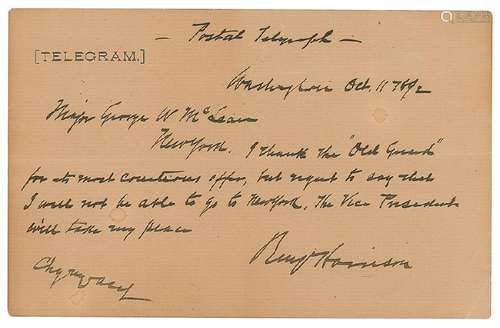 — Postal Telegraph —
[TELEGRAM.]
Washington Oct. 11th 1892
Major George W McLean
New York.
I thank the "Old Guard"
for its most courteous offer, but regret to say that
I will not be able to go to New York. The Vice President
will take my place
Benj Harrison
Chg